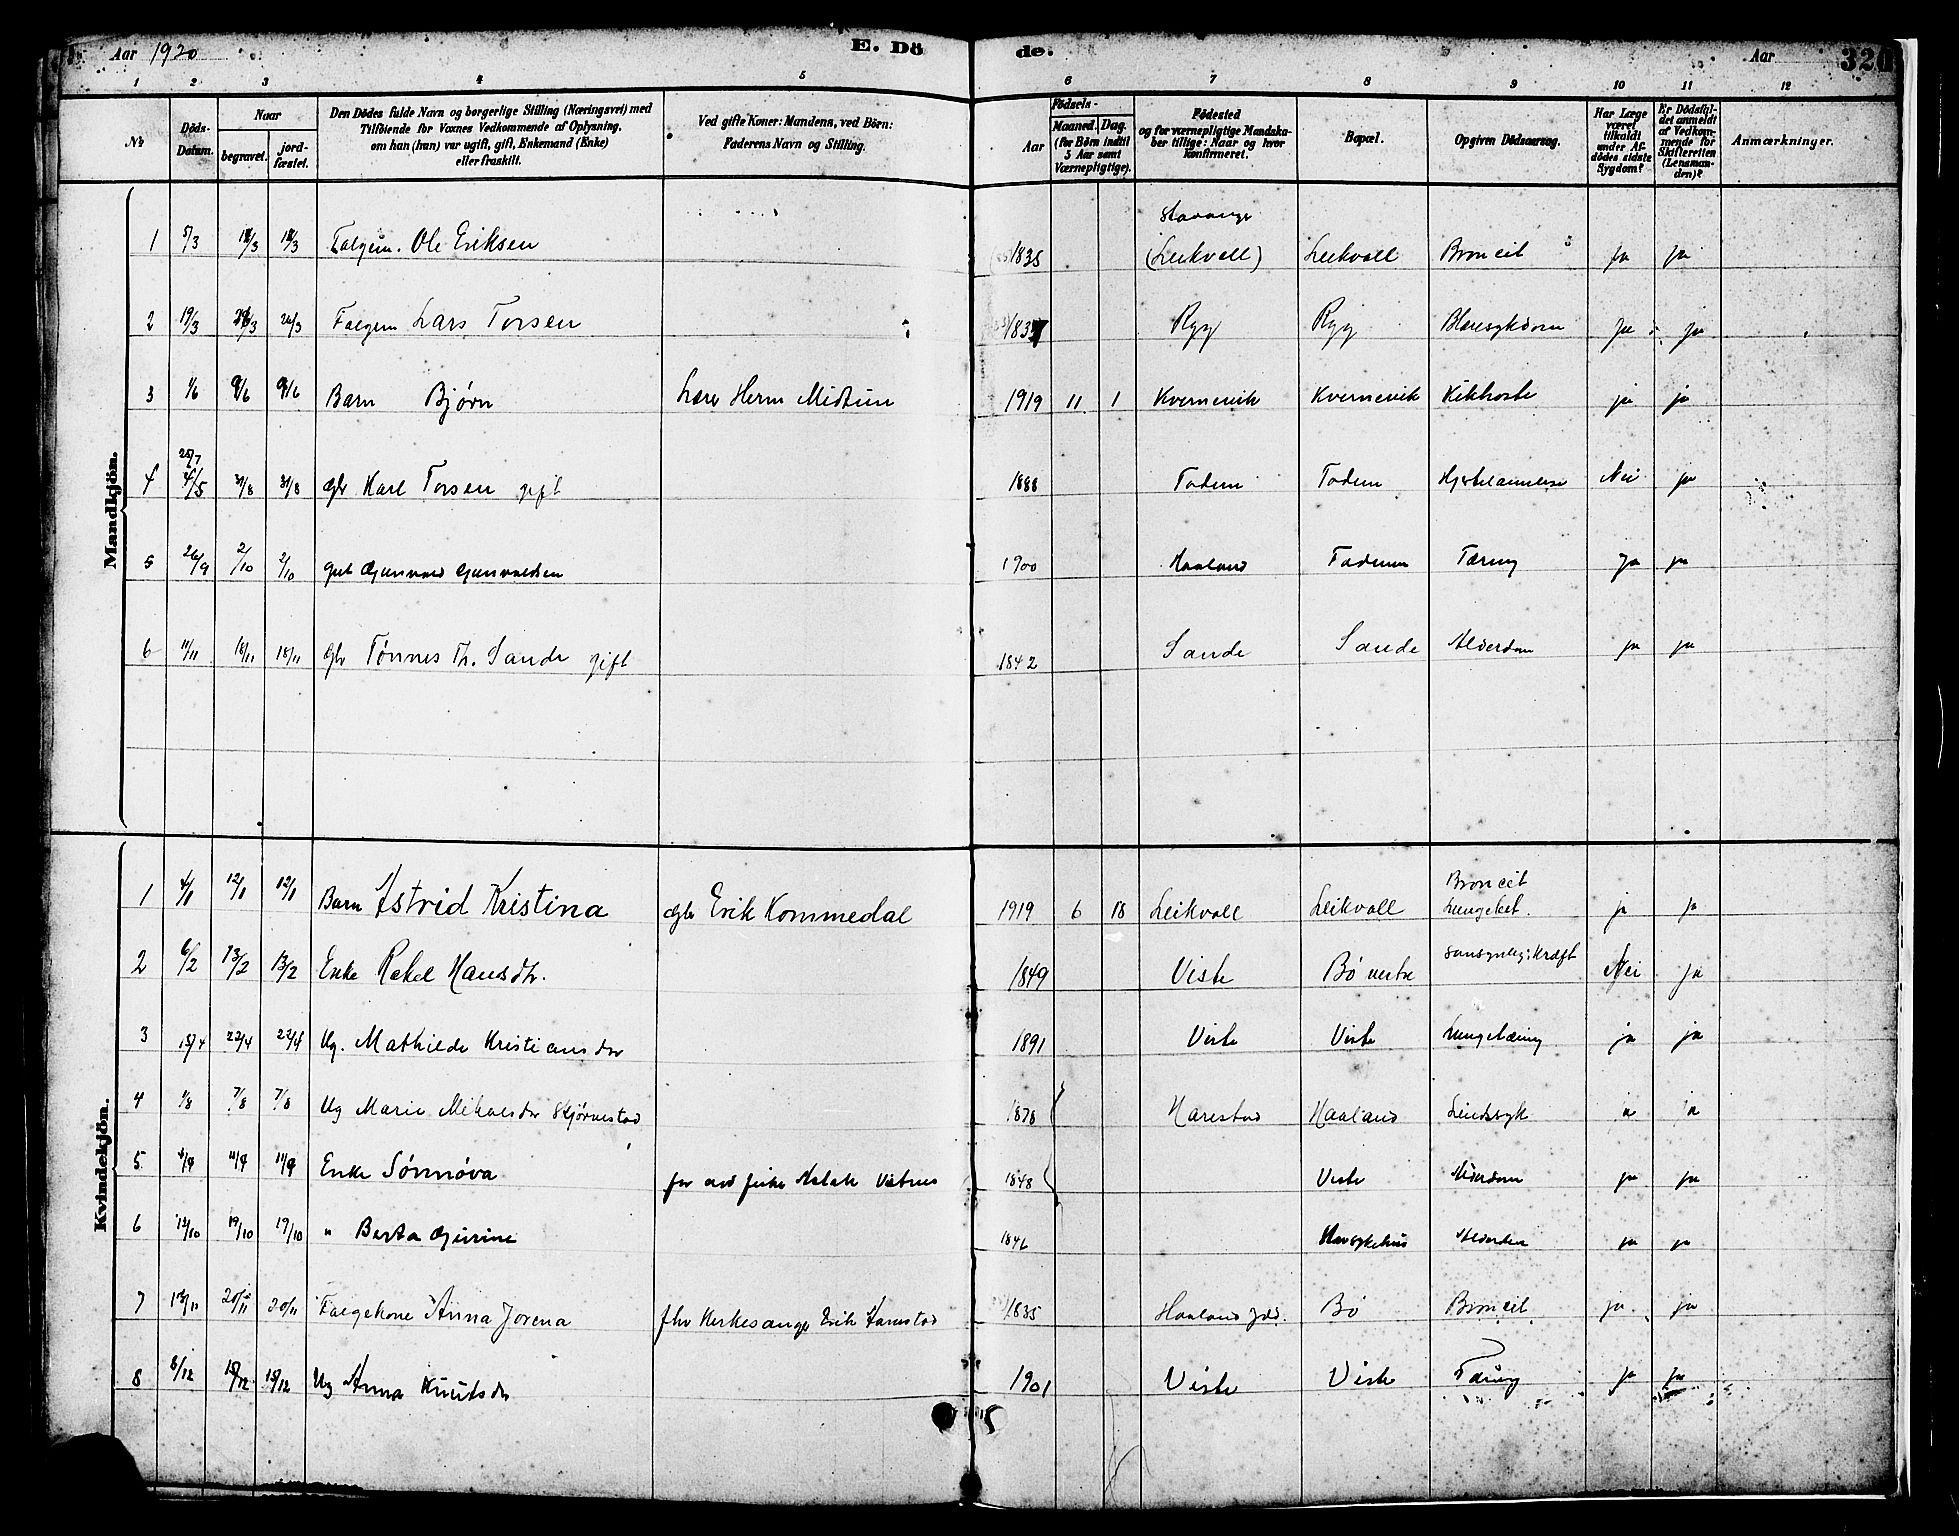 Aar 1920 E. Dö de. Aar 320
1 2 3 4 5 6 7 8 9 10 11 12
No
Döds-Datum.
Naar
begravet. jordfæstet.
Den Dödes fulde Navn og borgerlige Stilling (Næringsvei) med
Tilföiende for Voxnes Vedkommende af Oplysning,
om han (hun) var ugift, gift, Enkemand (Enke)
eller fraskilt.
Ved gifte Koner: Mandens, ved Börn:
Faderens Navn og Stilling.
Födsels-
Aar Maaned. Dag.
(for Börn indtil
5 Aar samt
Værnepligtige).
Födested
og for værnepligtige Mandska-
ber tillige: Naar og hvor
konfirmeret.
Bopæl.
Opgiven Dödsaarsag.
Har Læge
været
tilkaldt
under Af-
dödes sidste
Sygdom?
Er Dödsfal-
det anmeldt
af Vedkom-
mende for
Skifteretten
(Lensman-
den)?
Anmærkninger.
Mandkjön.
Stavanger
1 5/3 Ole Eriksen 1835 (Leikvoll) Leikvoll Broncit ja ja
2 19/3 26/3 Lars Torsen 1837 Rygg Rygg Blæresykdom ja ja
3 1/6 9/6 9/6 Barn Bjørn Lærer Herm Midtun 1919 11 1 Kvernevik Kvernevik Kikhoste ja ja
4 31/8 31/8 Gbr Karl Torsen gift 1888 Todnem Todnem Hjertelammelse Nei ja
5 26/9 2/10 2/10 Gut Gunvald Gunvaldsen 1900 Haaland Todnem Tæring ja ja
6 11/11 18/11 18/11 Gbr Tønnes Th. Sande gift 1842 Sande Sande Alderdom ja ja
Kvindekjön.
1 4/1 12/1 12/1 Barn Astrid Kristina Gbr Erik Kommedal 1919 6 18 Leikvoll Leikvoll Broncit ja ja
2 6/2 13/2 13/2 Enke Rakel Hansdtr. 1849 Viste Bø Nei ja
3 15/4 22/4 22/4 Ug. Mathilde Kristiansdtr 1891 Viste Viste Lungetæring ja ja
4 1/8 7/8 7/8 Ug Marie 1878 Harestad Haaland ja ja
5 11/9 11/9 Enke Sønnøva 1848 Viste Alderdom ja ja
6 12/10 19/10 19/10 " Berta Gurine 1846 Alderdom ja ja
7 13/11 20/11 20/11 Anna Jorena Kirkesanger Erik Harestad 1835 Haaland Bø Broncit ja ja
8 8/12 15/12 15/12 Ug Anna Knutsdtr 1901 Viste Viste Tæring ja ja